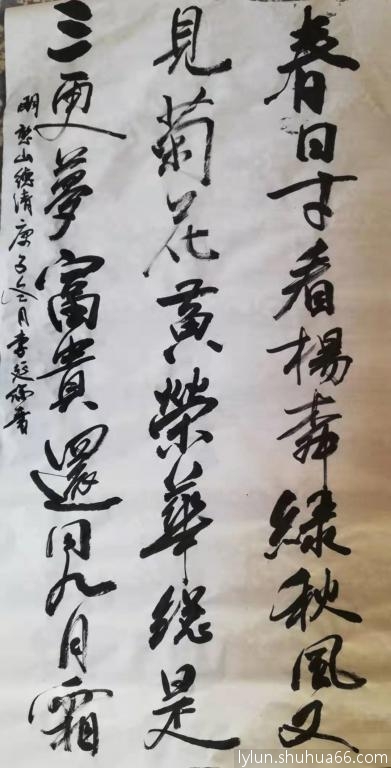 春日才看楊綠秋風又
見菊花黄榮華總是
三更夢富貴還同九月霜
明憨山德清庚子月李書
lylun.shuhua66.com